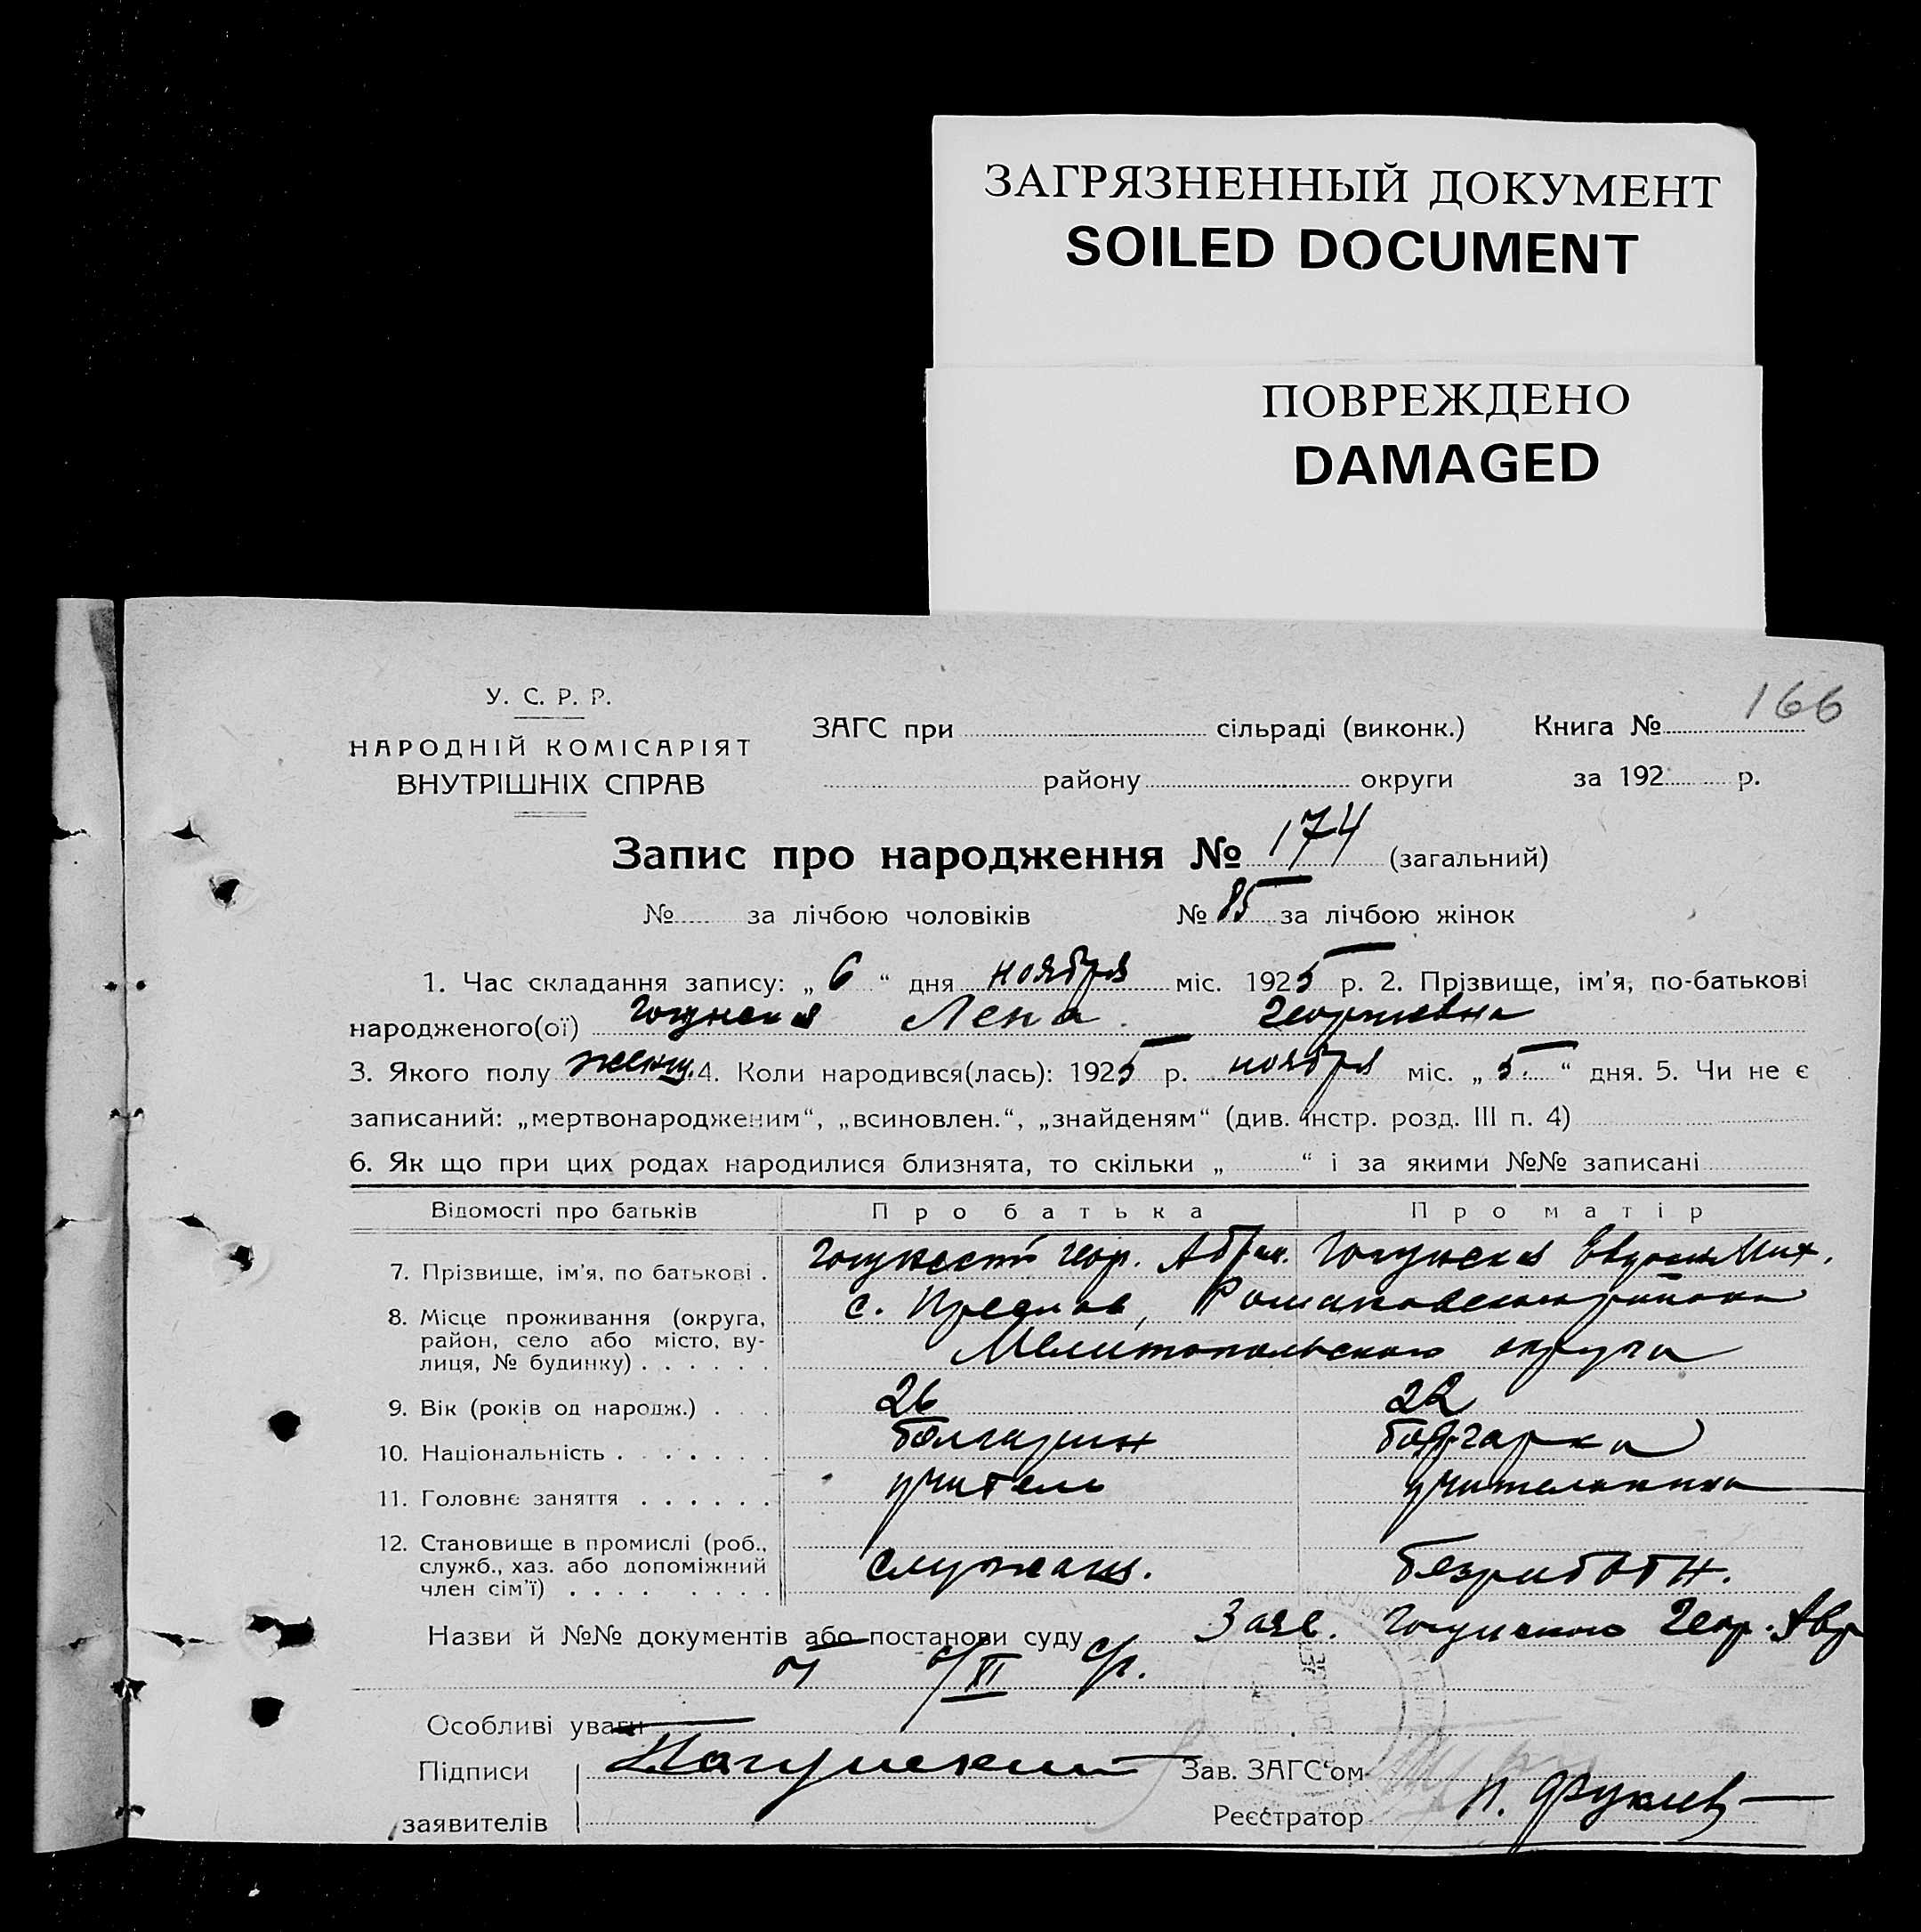 ЗАГРЯЗНЕННЫЙ ДОКУМЕНТ
SOILED DOCUMENT
ПОВРЕЖДЕНО
DAMAGED
166
У. С. Р. Р.
НАРОДНІЙ КОМІСАРІЯТ
ВНУТРІШНІХ СПРАВ
ЗАГС при сільраді (виконк.) Книга №
району округи за 192 р.
Запис про народження № 174 (загальний)
№ за лічбою чоловіків № 85 за лічбою жінок
1. Час складання запису: „ 6 “ дня ноября міс. 1925 р. 2. Прізвище, ім'я, по-батькові
народженого(ої) Лена Георгиевна
3. Якого полу женщ. 4. Коли народився(лась): 1925 р. ноября міс. „ 5. “ дня. 5. Чи не є
записаний: „мертвонародженим“, „всиновлен.“, „знайденям“ (див. інстр. розд. III п. 4)
6. Як що при цих родах народилися близнята, то скільки „ “ і за якими №№ записані
Відомості про батьків Про батька Про матір
7. Прізвище, ім'я, по батькові . Геор. Мих.
8. Місце проживання (округа, с. Преслав, Романовского района
район, село або місто, ву-
лиця, № будинку) . . . . . . Мелитопольского округа
9. Вік (років од народж.) . . 26 22
10. Національність . . . . . . болгарин болгарка
11. Головнє заняття . . . . . . учитель учительница
12. Становище в промислі (роб.,
служб., хаз. або допоміжний служащ. безработн.
член сім'ї) . . . . . . . .
Назви й №№ документів або постанови суду Заяв. Геор.
от 6/XI с/г.
Особливі уваги
Підписи Зав. ЗАГС'ом
заявителів Реєстратор